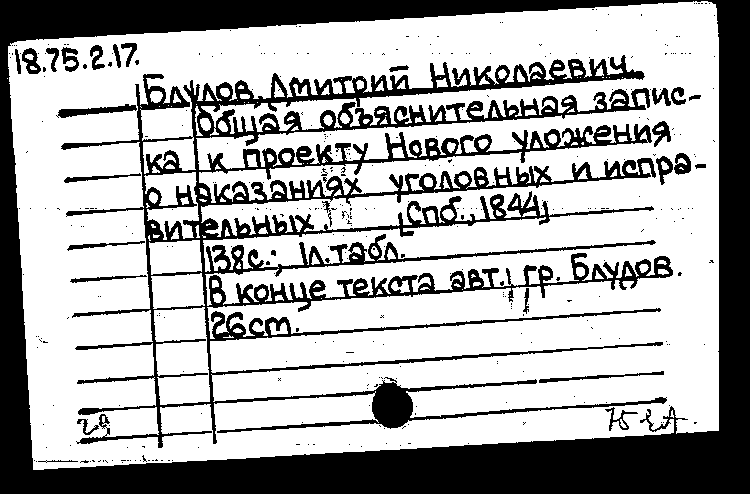 18.75.2.17.
Блудов, Дмитрий Николаевич.
Общая объяснительная запис-
ка к проекту Нового уложения
о наказаниях уголовных и испра-
вительных. [Спб., 1844]
138с.; 1л.табл.
В конце текста авт.: гр. Блудов.
26ст.
29